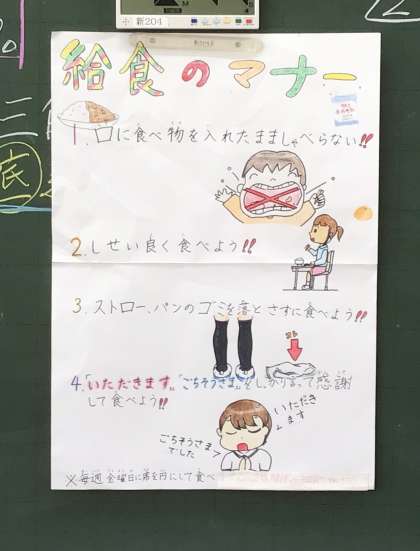 新204
給食のマナー
1. 口に食べ物を入れたまましゃべらない!!
2. しせい良く食べよう!!
3. ストロー、パンのゴミを落とさずに食べよう!!
4.「いただきます」「ごちそうさま」をしっかり言って感謝
して食べよう!!
いただき
ます
ごちそうさま
でした
※毎週金曜日に席を円にして食べ